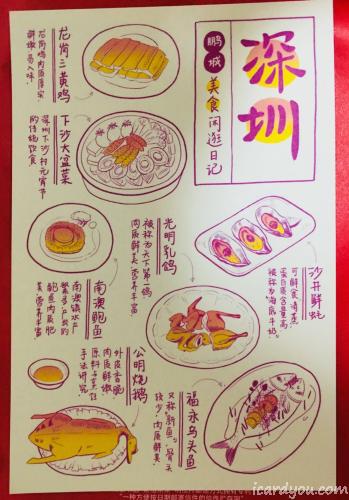 深圳
鹏城
美食闲逛日记
龙岗三黄鸡
龙岗鸡肉质厚实
鲜嫩,易入味。
下沙大盆菜
深圳下沙村元宵节
的传统饮食
沙井鲜蚝
可鲜食晴煮
蛋白质含量高
被称为"海底牛奶"。
光明乳鸽
被称为"天下第一鸽"
肉质鲜美,营养丰富
南澳鲍鱼
南澳镇水产
繁多,产出的
鲍鱼肉质肥
美营养丰富
公明烧鹅
外皮香脆
肉质鲜嫩
原料与烹饪
手法讲究。
福永乌头鱼
又称"鲻鱼",骨头
较少,肉质鲜美
icardyou.com